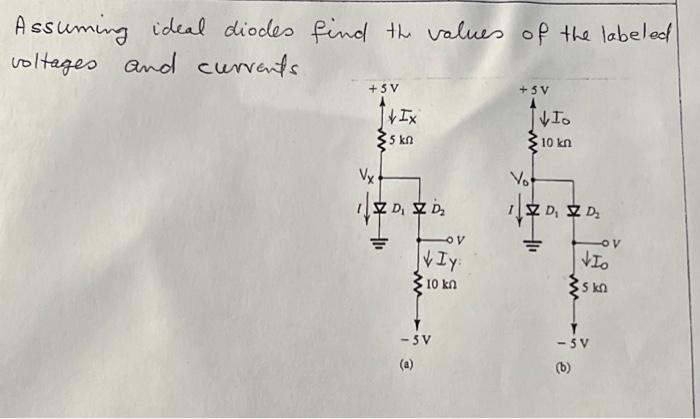 Assuming ideal diodes find th values of the labeled
voltages and currents
+5 V
↓Ix
5 kΩ
Vx
I D₁ D₂
V
↓Iy
10 kΩ
-5 V
(a)
+5 V
↓Io
10 kΩ
Vo
I D₁ D₂
V
↓Io
5 kΩ
-5 V
(b)